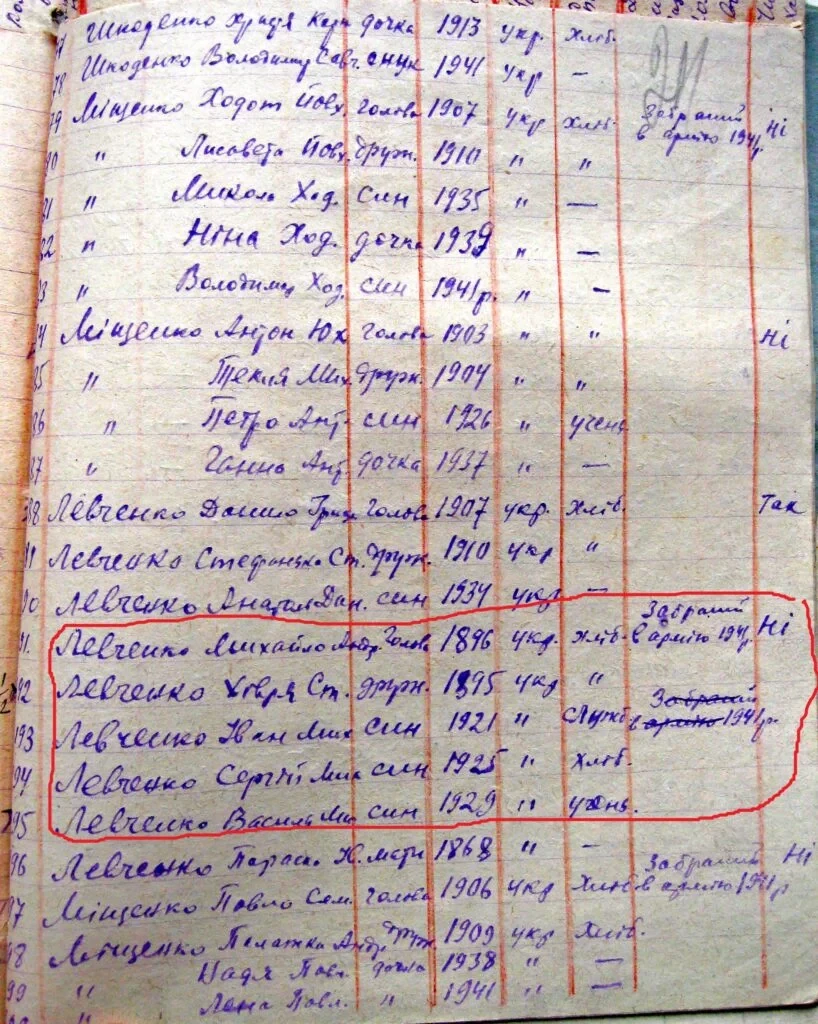 Шкоденко Христя Кари дочка 1913 укр. хліб.
78 Шкоденко Володимир Савч. снук 1941 укр —
79 Міщенко Ходот Йовх. голова 1907 укр хліб. Забраний в армію 1941р. Ні
" Лисавета Йовх. друж. 1910 " "
" Микола Ход. син 1935 " —
" Ніна Ход. дочка 1939 " —
" Володимир Ход. син 1941р. " —
Міщенко Антон Юх голова 1903 " " Ні
" Текля Мих. друж. 1904 " "
" Петро Ант. син 1926 " учень
" Ганна Ант. дочка 1937 " —
188 Левченко Данило Гриц. Голова 1907 укр. хліб. Так
Левченко Стефанида Ст. друж. 1910 укр "
Левченко Анатол Дан. син 1934 укр —
91. Левченко Михайло Андр. Голова 1896 укр. хліб. Забраний в армію 1941р. Ні
92 Левченко Ховря Ст. друж. 1895 укр "
193 Левченко Іван Мих син 1921 " службо Забраний в армію 1941р.
94 Левченко Сергій Мих син 1925 " хліб.
195 Левченко Василь Мих син 1929 " учень.
96 Левченко Параска мати 1868 " —
197 Міщенко Павло Сем. голова 1906 укр хліб Забраний в армію 1941р Ні
98 Міщенко Палажка Андр. друж 1909 укр хліб.
99 " Надя Павл. дочка 1938 " —
" Лена Павл. " 1941 " —